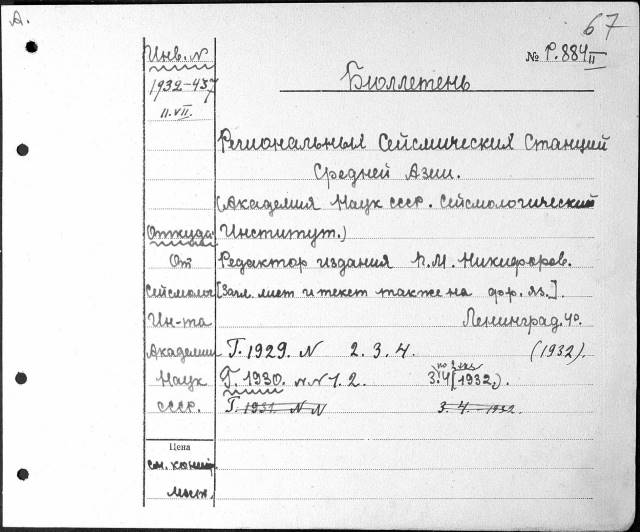 А.
67
Инв. N
№ Р. 884 II
1932-437
Бюллетень
11. VII.
Региональных Сейсмических Станций
Средней Азии.
(Академия Наук СССР. Сейсмологический
Откуда Институт.)
От Редактор издания П. М. Никифоров.
Сейсмолог [Загл. лист и текст также на фр. яз.].
Ин-та Ленинград. 4о.
Академии Г. 1929. N 2. 3. 4. (1932).
по 2 экз.
Наук Г. 1930. N N 1. 2. 3. 4 (1932.).
СССР. Г. 1931. N N 3. 4. 1932.
Цена
см.